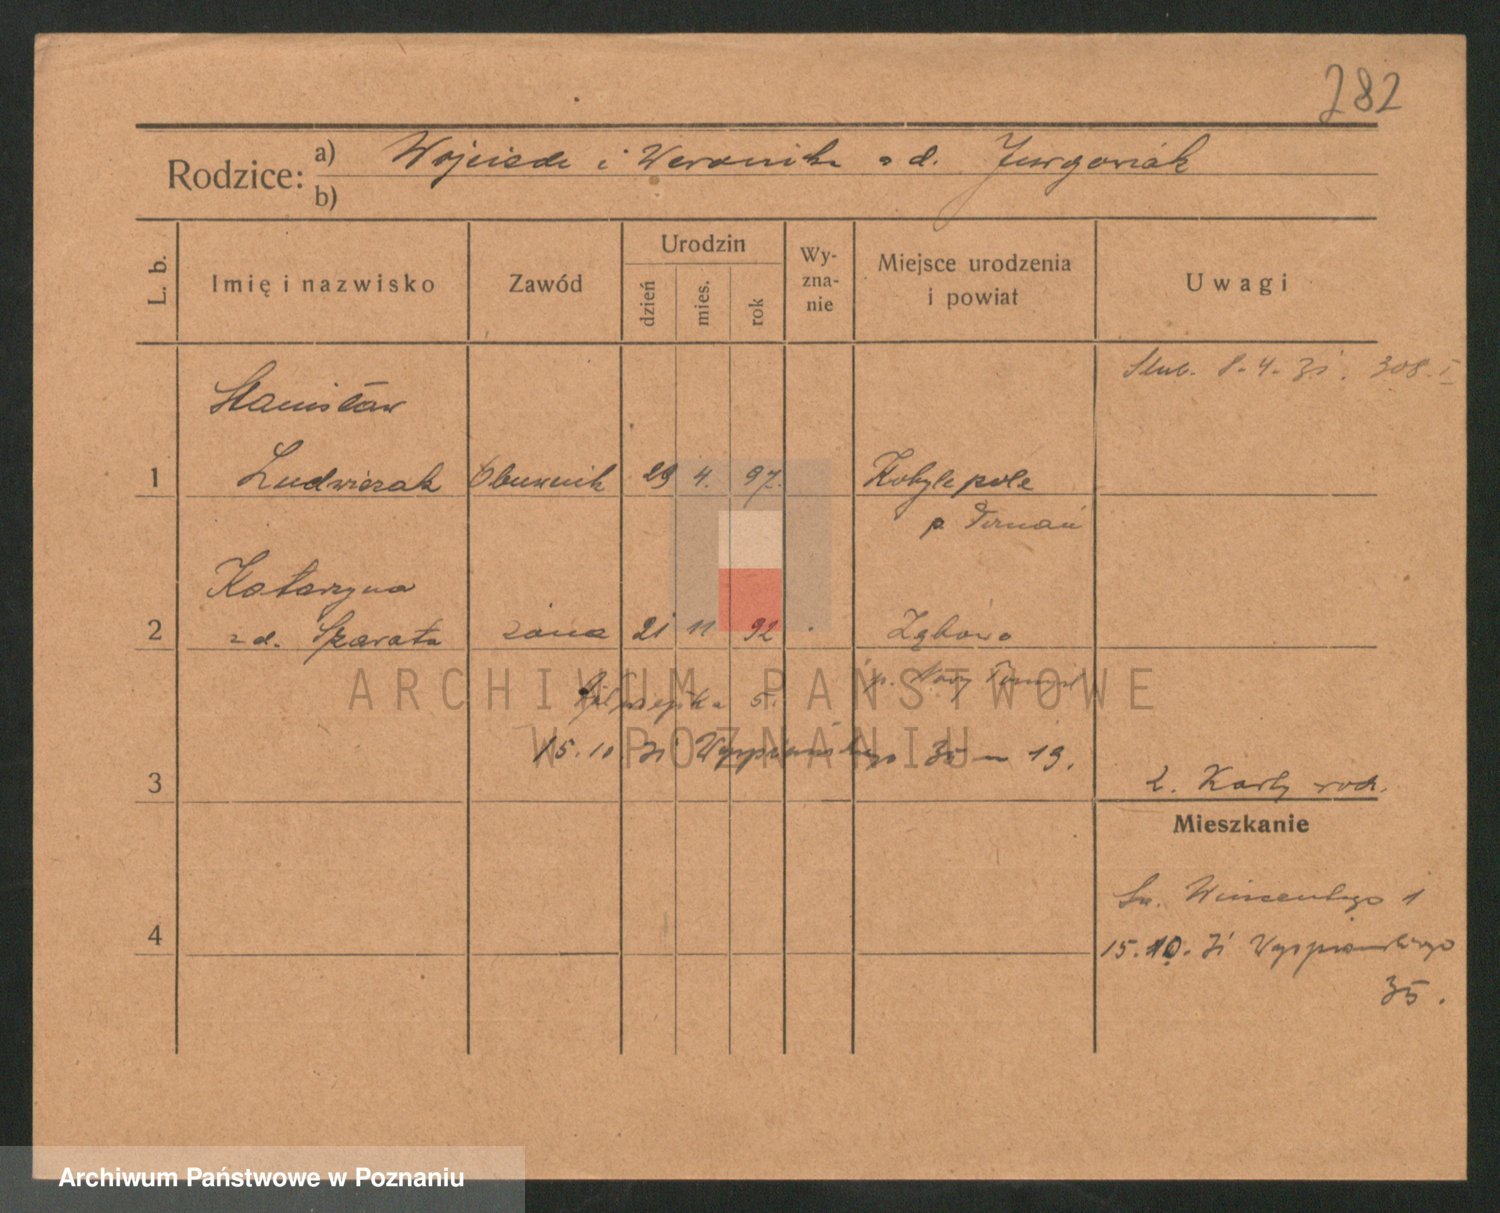 282
Rodzice: a) Wojciech i Weronika z d. Jurgowiak
b)
L. b.
Imię i nazwisko
Zawód
Urodzin
dzień
mies.
rok
Wy-
zna-
nie
Miejsce urodzenia
i powiat
Uwagi
Ślub. 8.4.31. 308.I
Stanisław
1 Ludwiczak Obuwnik 29 4. 97. Kobylepole
p. Poznań
Katarzyna
2 z d. Szarata żona 21 11 92 Zębowo
p. Nowy Tomyśl
5.
15.10 31 Wyspiańskiego 35 – 13.
3
2. Karty rodz.
Mieszkanie
Św. Wincentego 1
4
15.10. 31 Wyspiańskiego
35.
ARCHIWUM PAŃSTWOWE
W POZNANIU
Archiwum Państwowe w Poznaniu